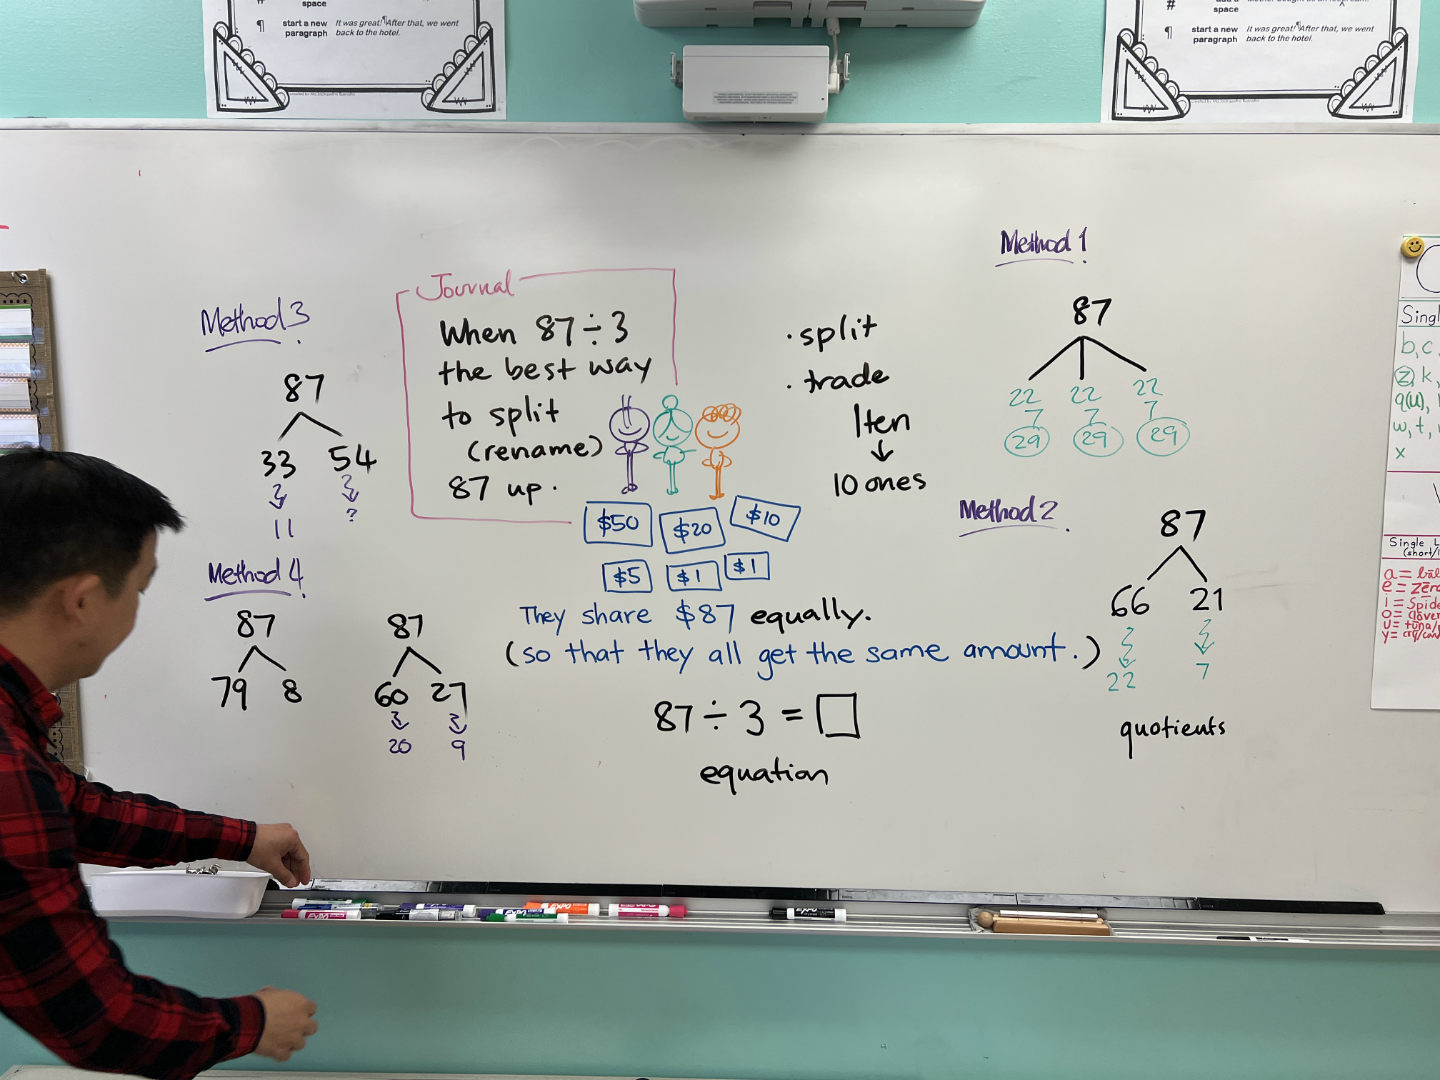 space
¶ start a new paragraph
It was great!¶After that, we went back to the hotel.
#
space
¶ start a new paragraph
It was great!¶After that, we went back to the hotel.
Method 3
87
33 54
11 ?
Method 4
87
79 8
87
60 27
20 9
Journal
When 87 ÷ 3
the best way
to split
(rename)
87 up.
$50 $20 $10
$5 $1 $1
They share $87 equally.
(so that they all get the same amount.)
87 ÷ 3 = □
equation
· split
· trade
1ten
↓
10 ones
Method 1
87
22 22 22
7 7 7
29 29 29
Method 2
87
66 21
22 7
quotients
Singl
b, c,
z, k,
q(u),
w, t,
x
Single L
(short/l
a =
e = zero
i = Spide
o =
u = tuna/
y =
EXPO
EXPO
EXPO